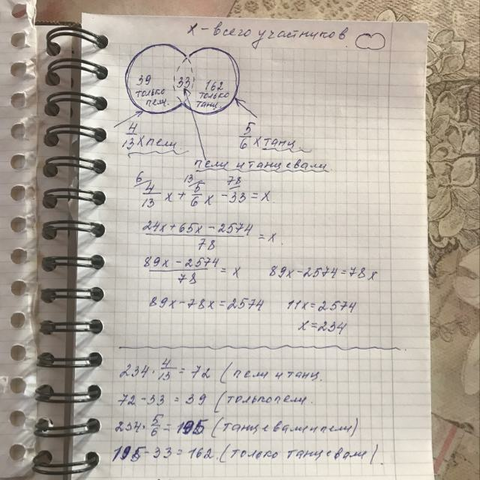 x - всего участников
39 только пели.
33
162 только танц.
4/13 x пели
5/6 x танц
пели и танцевали
6 13 78
4/13 x + 5/6 x - 33 = x
(24x + 65x - 2574)/78 = x.
(89x - 2574)/78 = x 89x - 2574 = 78x
89x - 78x = 2574 11x = 2574
x = 234
234 · 4/13 = 72 (пели и танц.
72 - 33 = 39 (только пели.
234 · 5/6 = 195 (танцевали и пели)
195 - 33 = 162 (только танцевали).